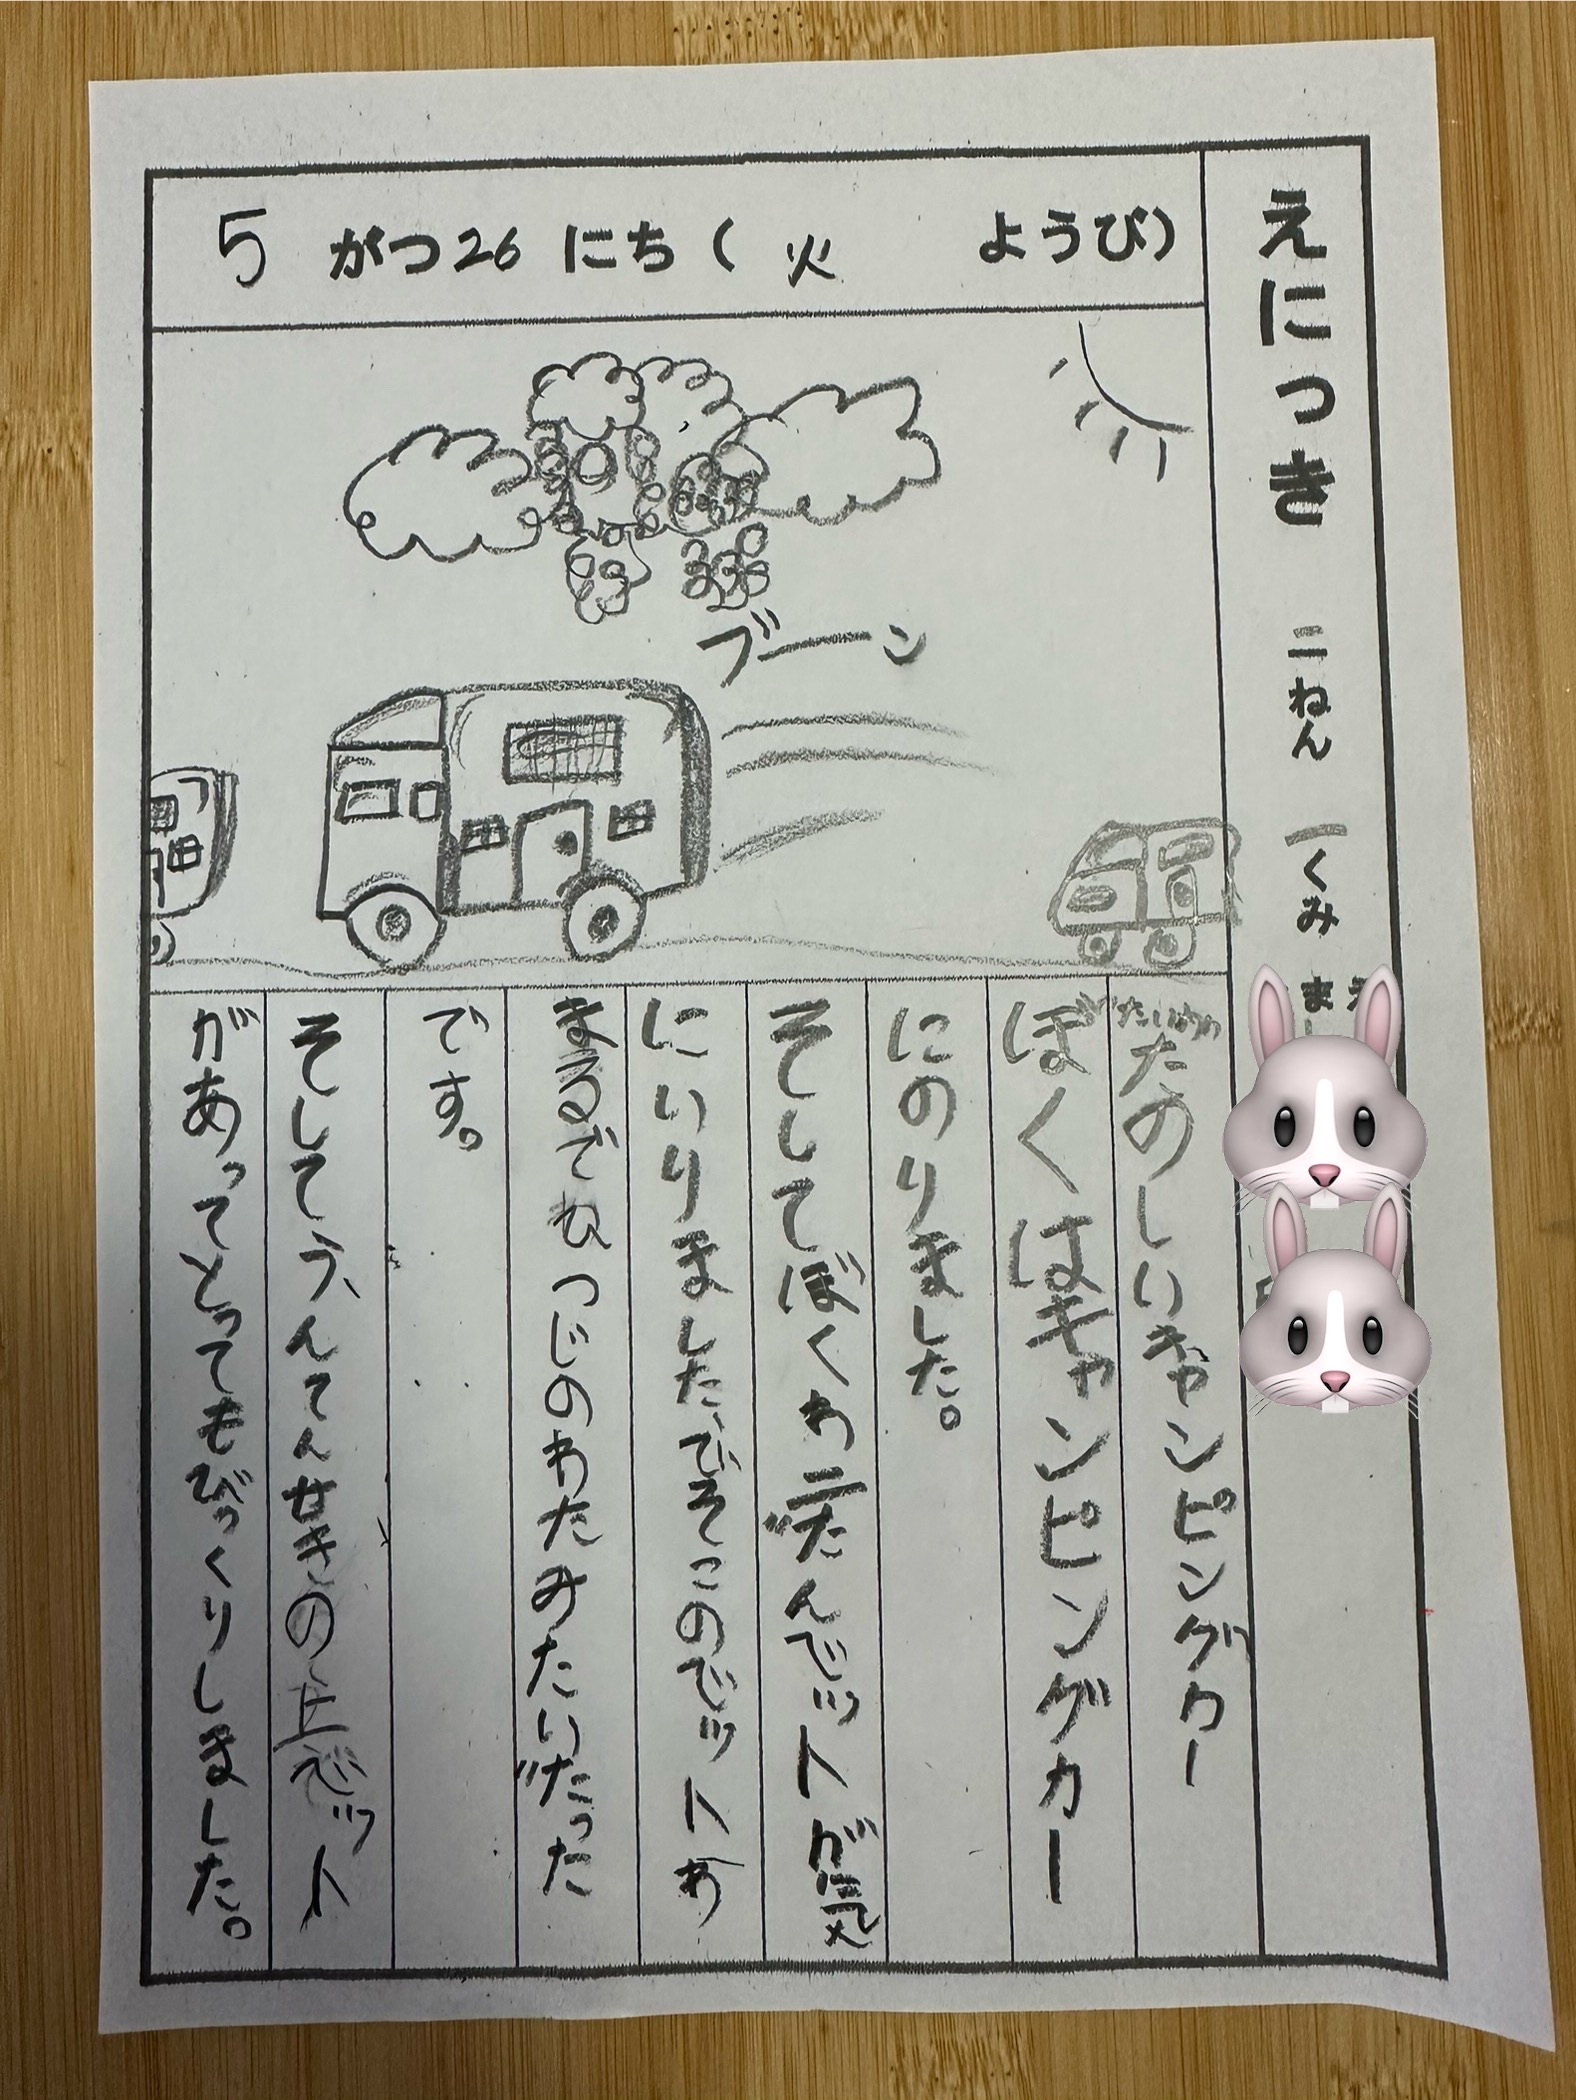 えにっき 二ねん 一くみ
5がつ26にち(火ようび)
ブーン
だいめい
たのしいキャンピングカー
ぼくはキャンピングカー
にのりました。
そしてぼくわ二だんベットが気
にいりました、でそこのベットわ
まるでひつじのわたみたいだった
です。
そしてう、んてんせきの上ベット
があってとってもびっくりしました。